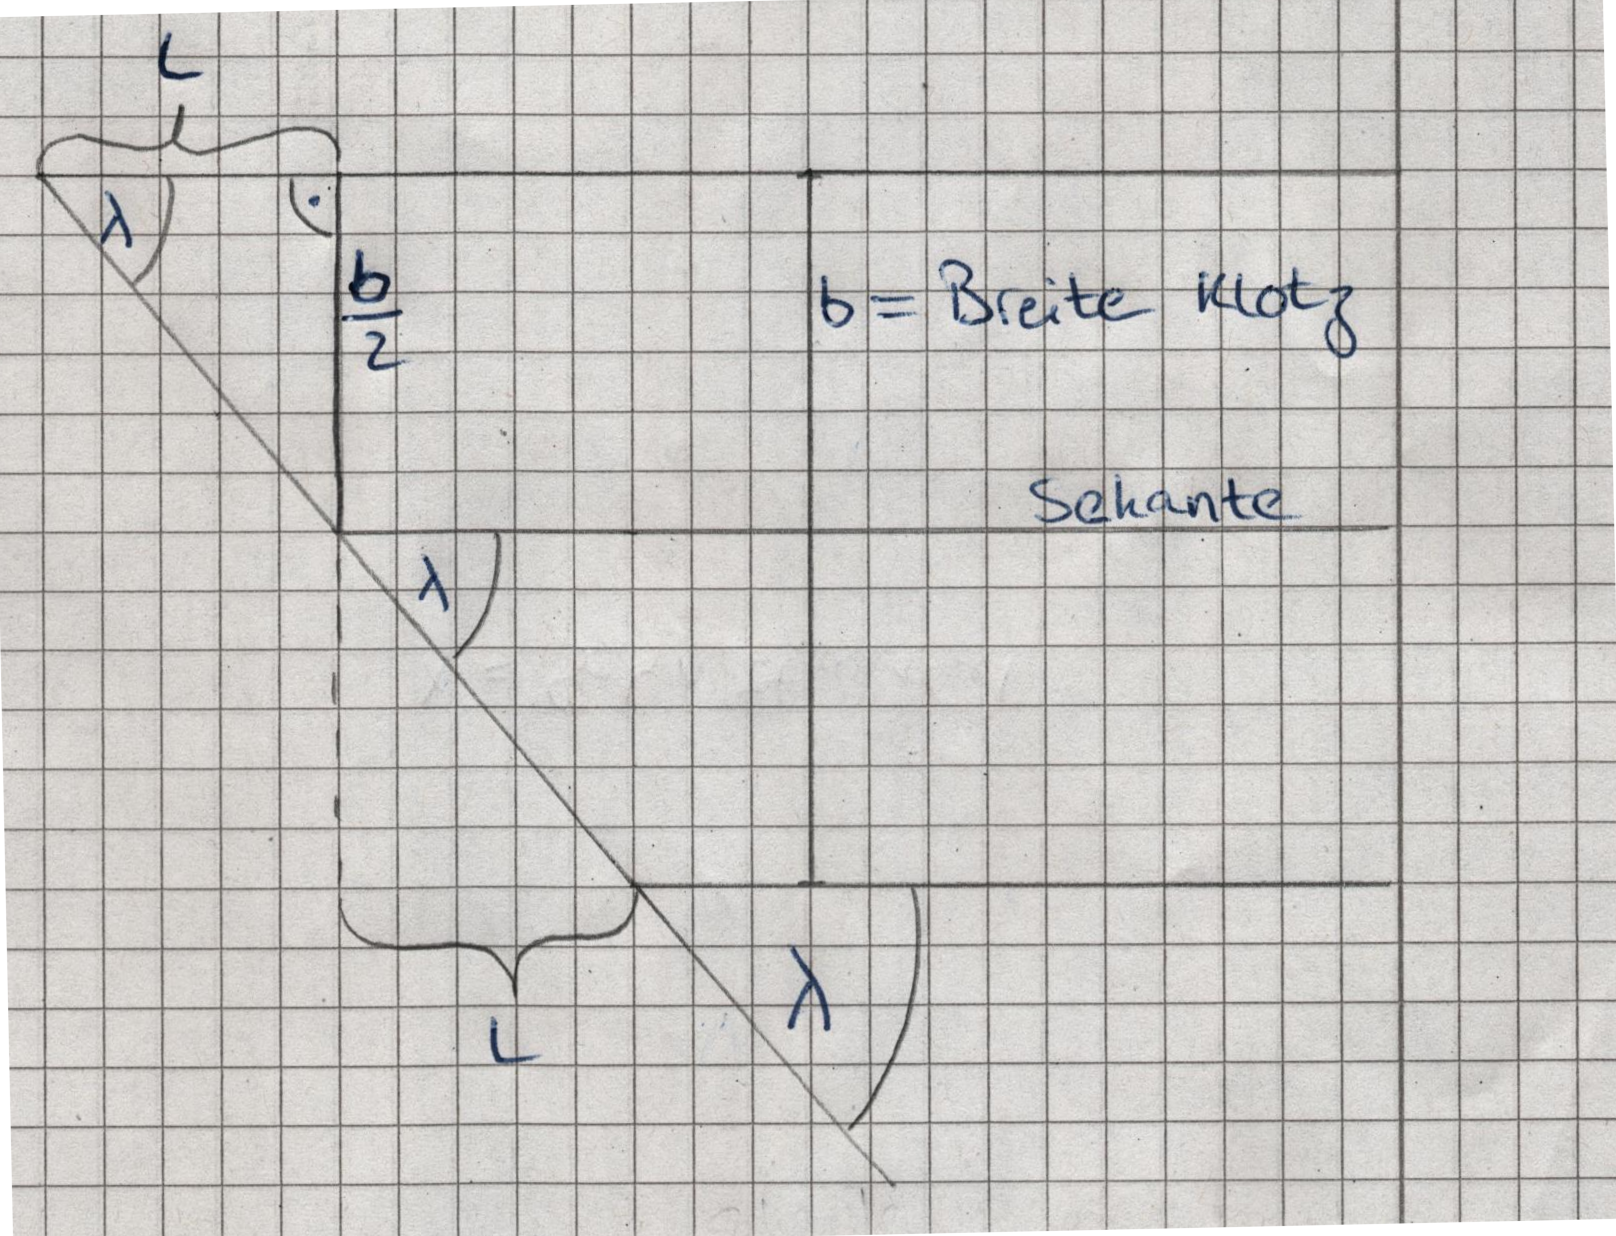 L
λ
b
2
b = Breite Klotz
Sekante
λ
λ
L